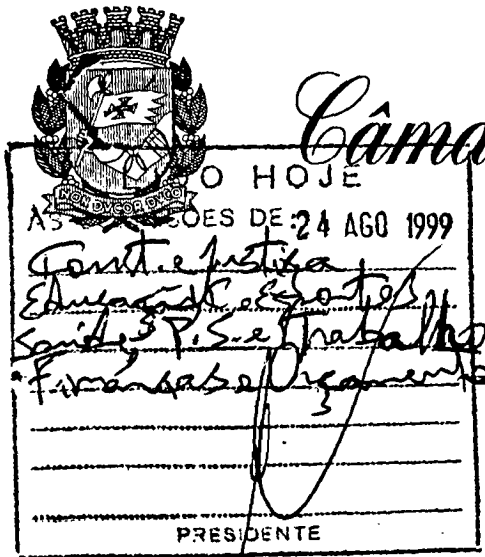 Câma
NON DVCOR DVCO
O HOJE
AS SOES DE: 24 AGO 1999
Const. e Justiça
Educação, C. e Esportes
Saúde, P.S. e Trabalho
Finanças e Orçamento
PRESIDENTE